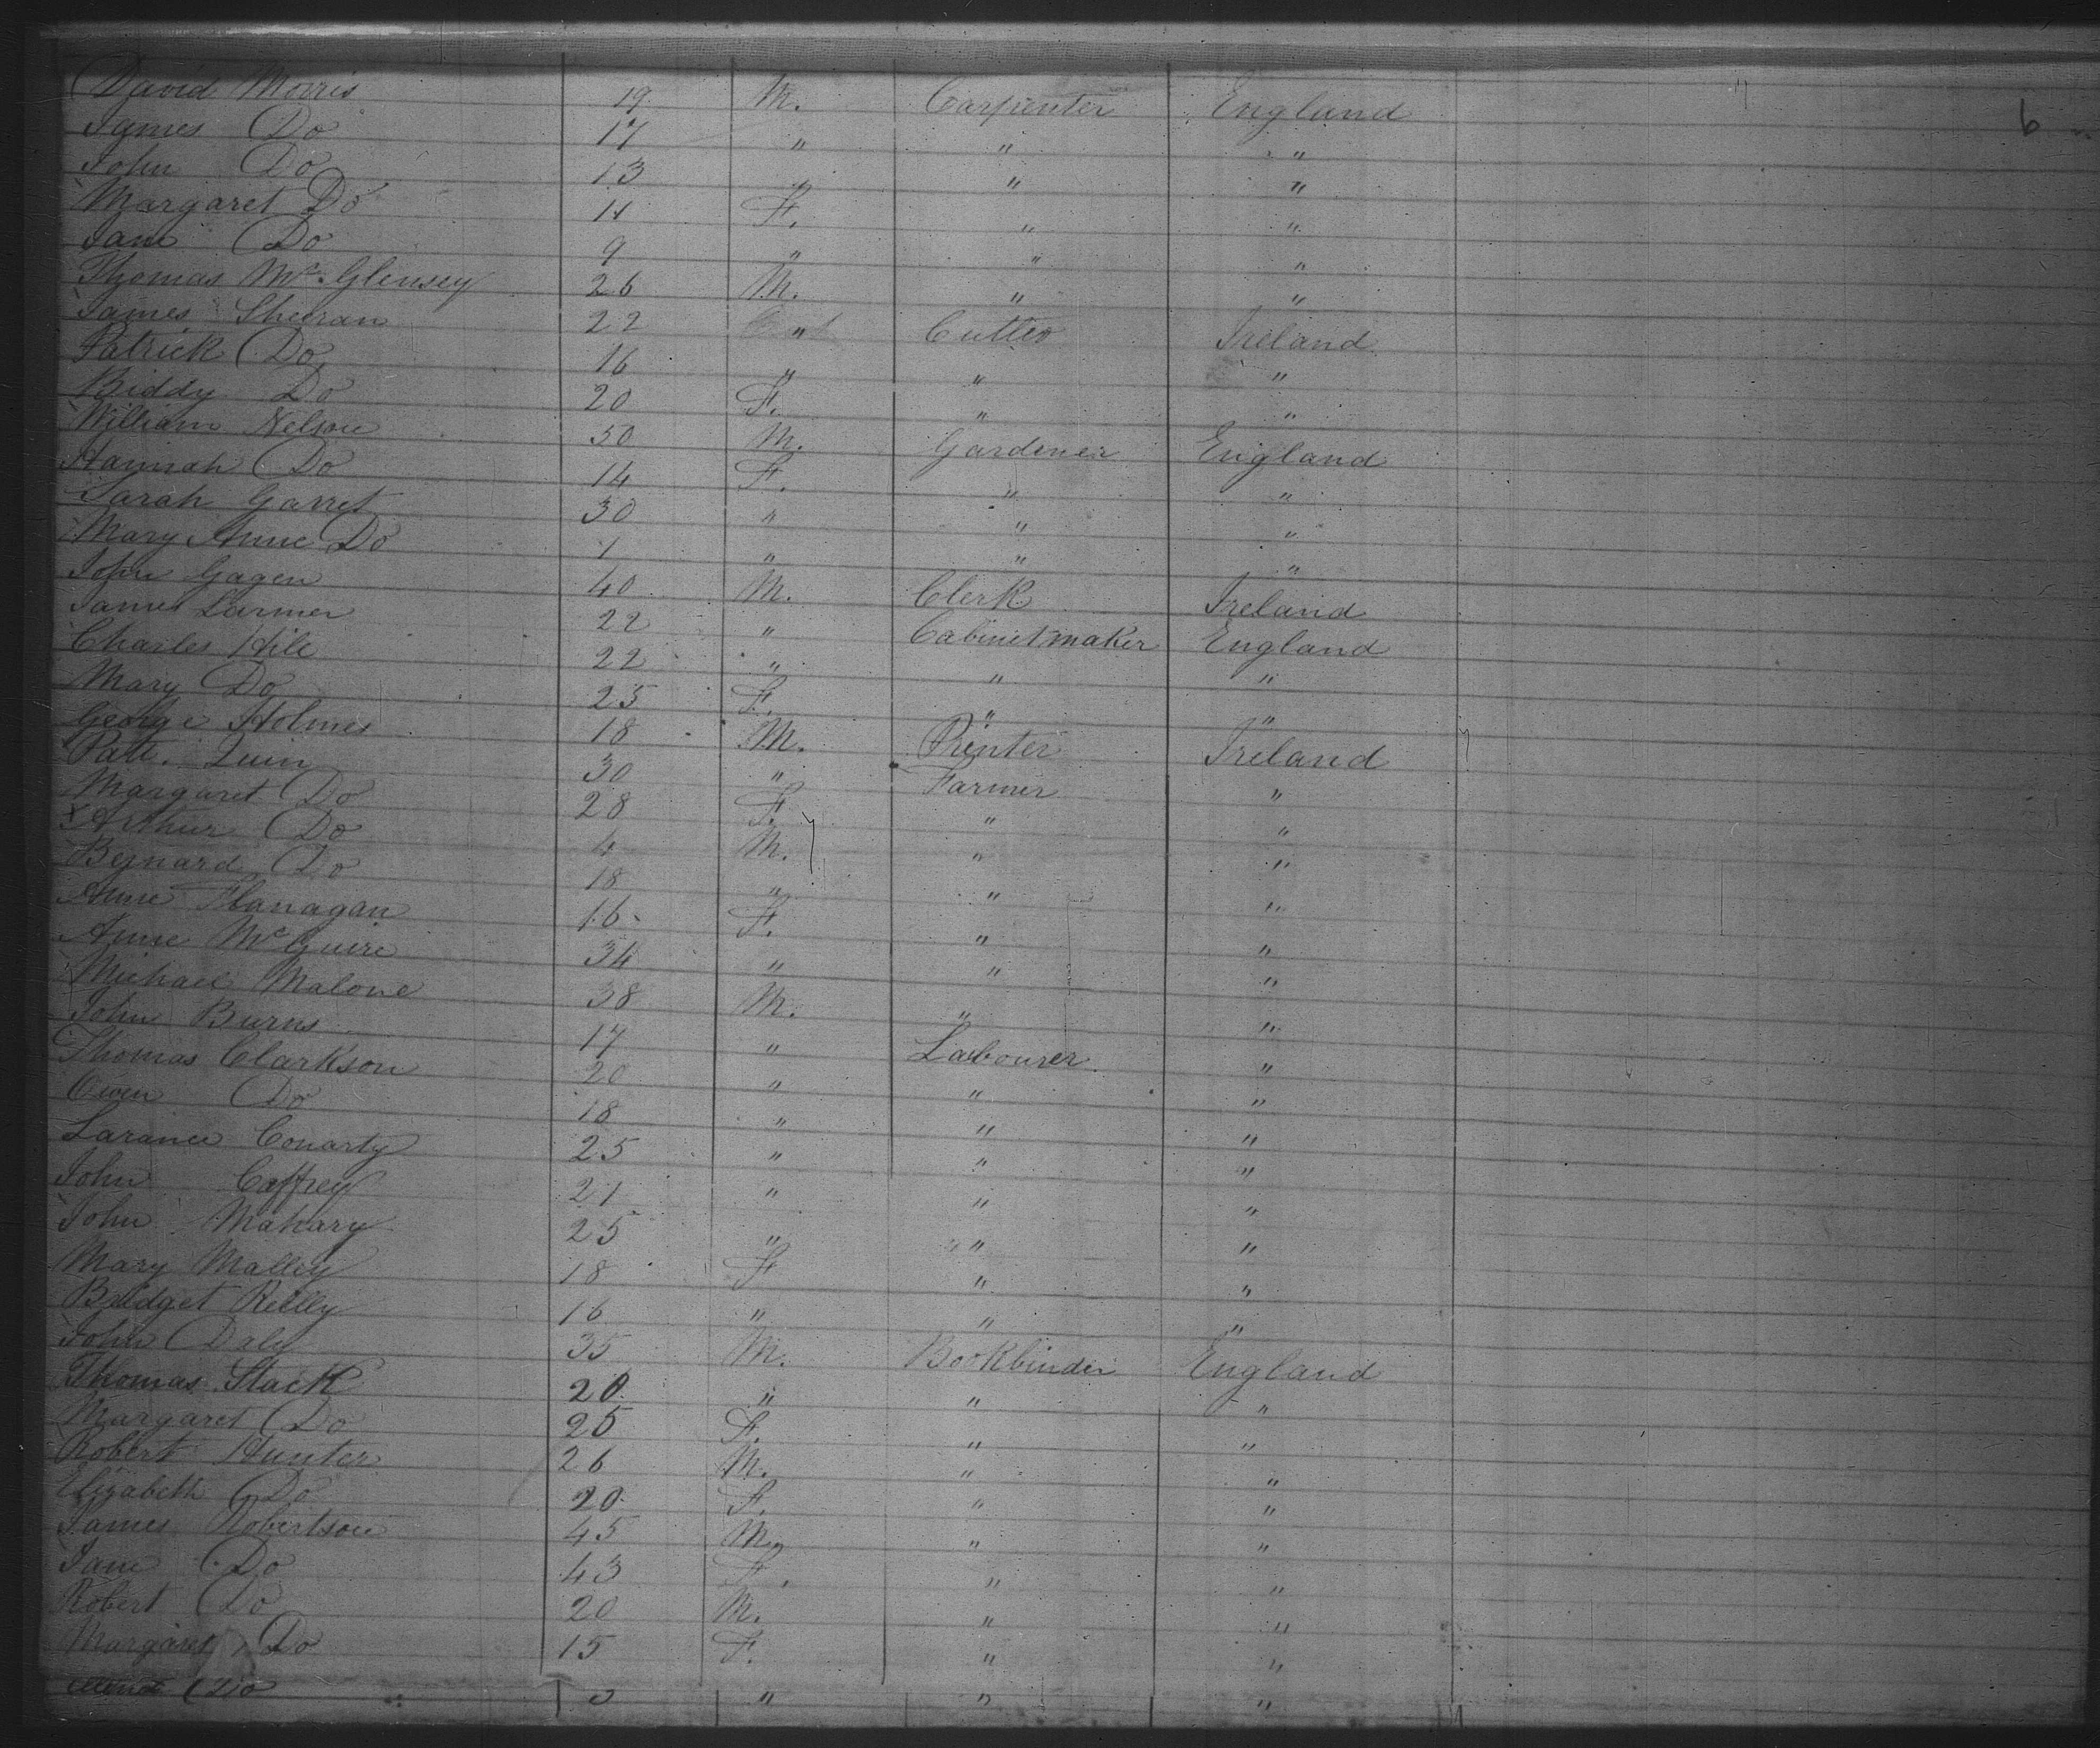 6
David Morris 19 M. Carpenter England
James Do 17 " " "
John Do 13 " " "
Margaret Do 11 F. " "
Jane Do 9 " " "
Thomas Mc Glensey 26 M. " "
James Sheran 22 " Cutler Ireland
Patrick Do 16 " " "
Biddy Do 20 F. " "
William Nelson 50 M. Gardener England
Hannah Do 14 F. " "
Sarah Garret 30 " " "
Mary Anne Do 1 " " "
John Gagen 40 M. Clerk Ireland
James Larmer 22 " Cabinetmaker England
Charles Hile 22 " " "
Mary Do 25 F. " "
George Holmes 18 M. Printer Ireland
Patt. Quin 30 " Farmer "
Margaret Do 28 F. " "
x Arthur Do 4 M. " "
Bernard Do 18 " " "
Anne Flanagan 16 F. " "
Anne McGuire 34 " " "
Michael Malone 38 M. " "
John Burns 17 " Labourer "
Thomas Clarkson 20 " " "
Owen Do 18 " " "
Larance Conarty 25 " " "
John Caffrey 21 " " "
John Makary 25 " " "
Mary Malley 18 F " "
Bridget Reilly 16 " " "
John Daly 35 M. Bookbinder England
Thomas Stack 20 " " "
Margaret Do 25 F. " "
Robert Hunter 26 M. " "
Elizabeth Do 20 F. " "
James Robertson 45 M. " "
Jane Do 43 F. " "
Robert Do 20 M. " "
Margaret Do 15 F. " "
Do " " "